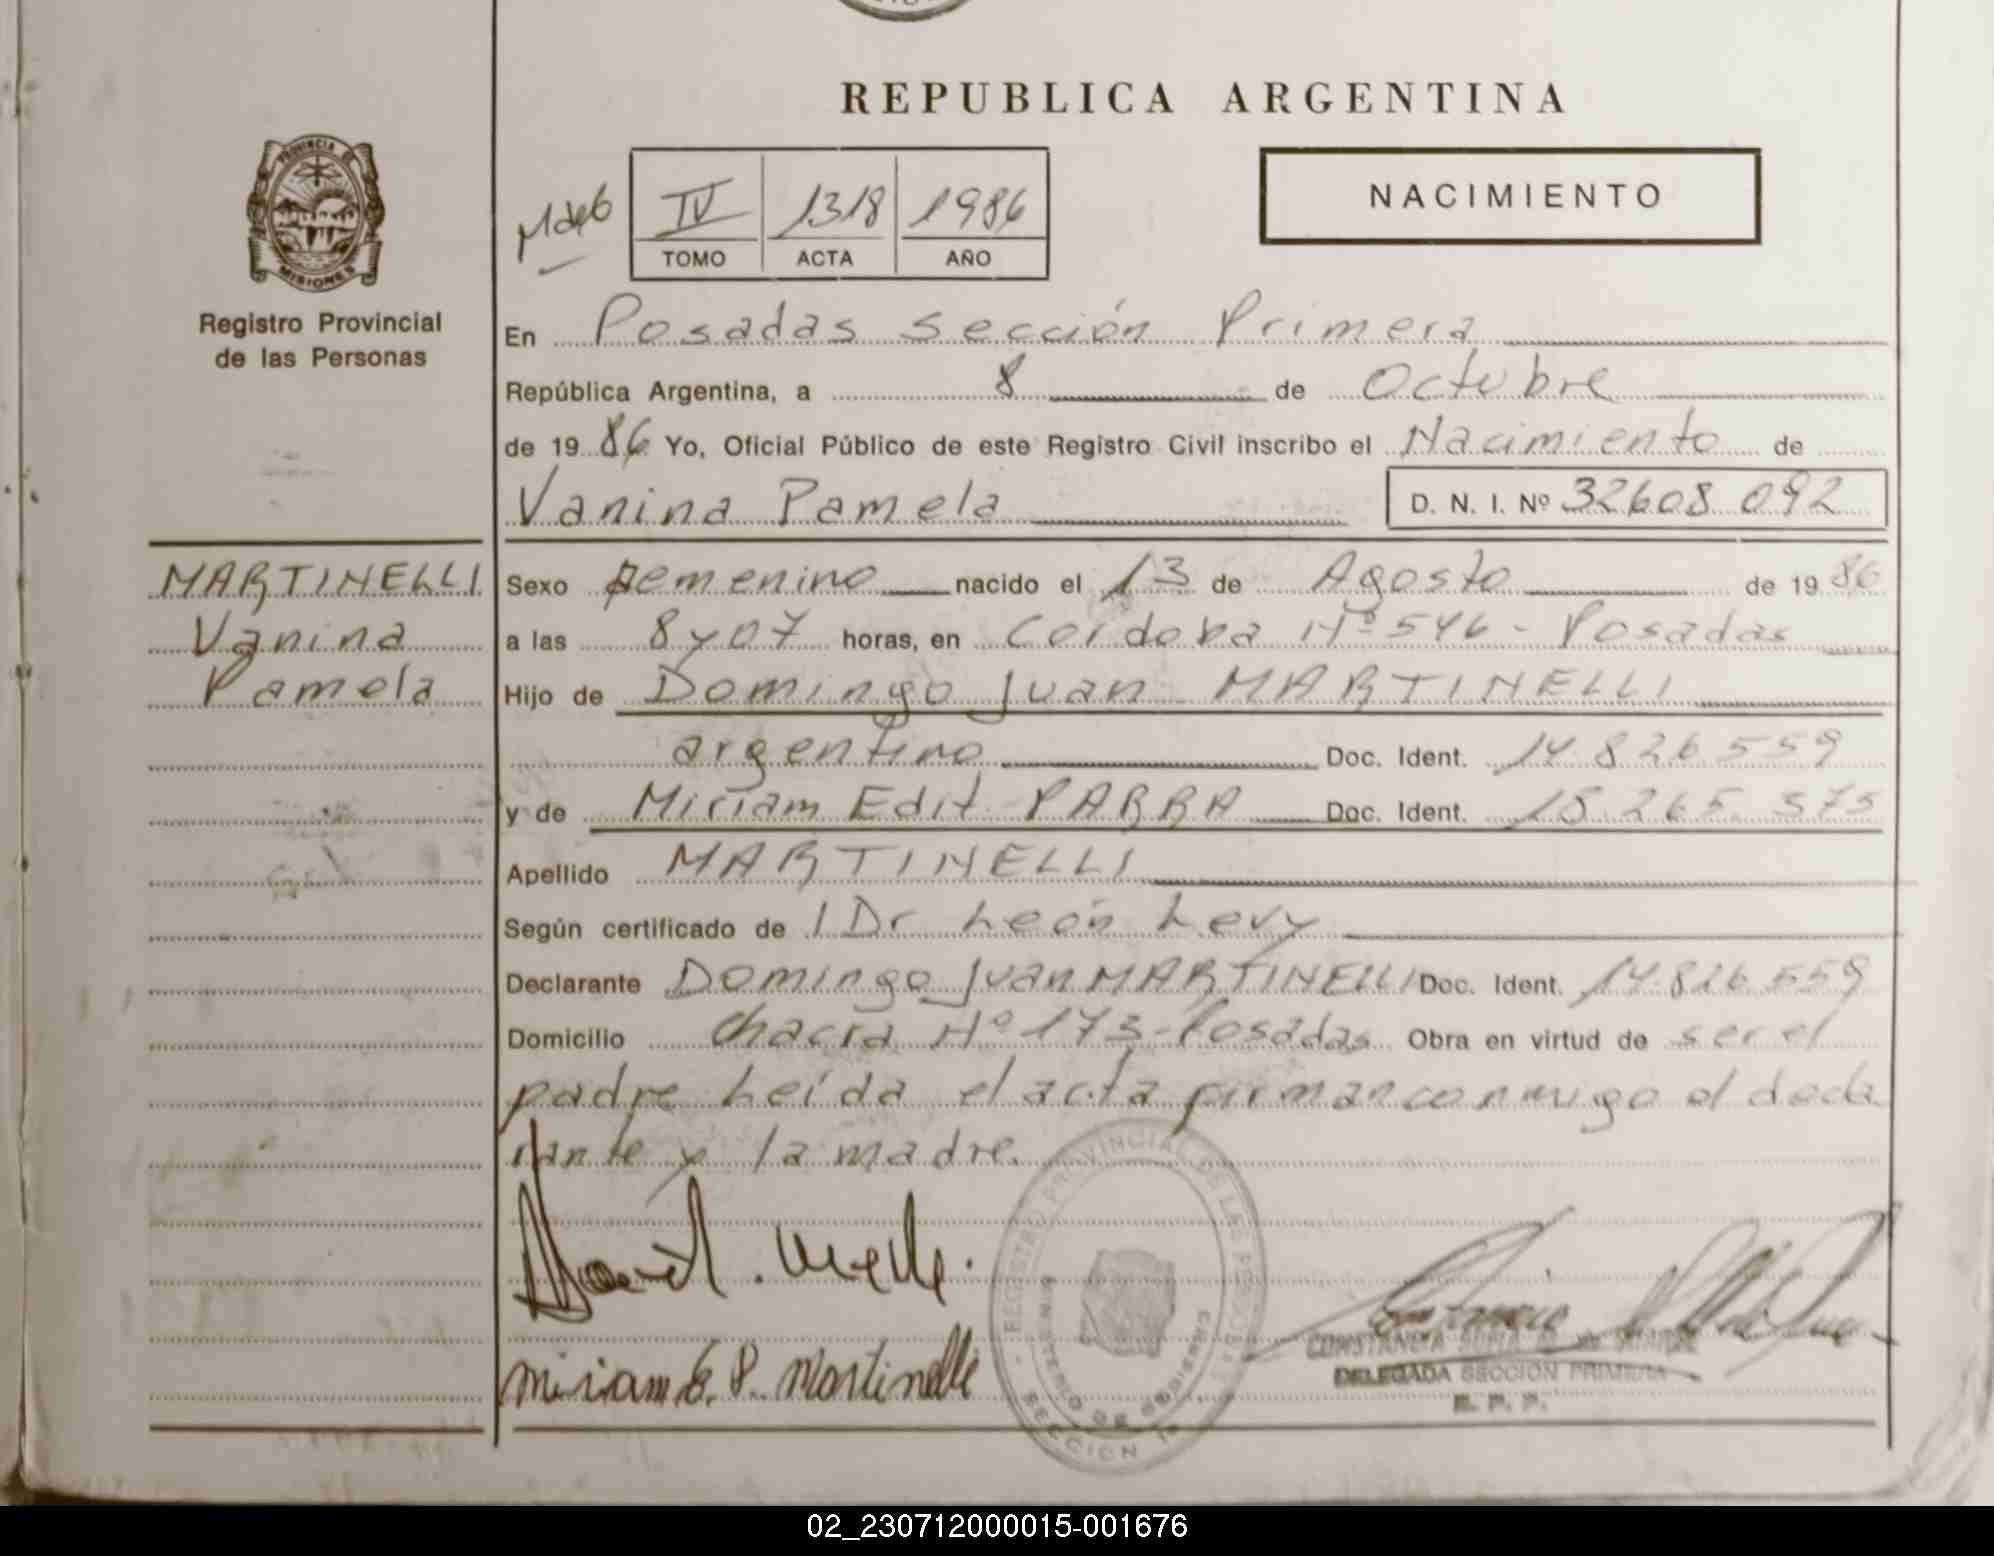 REPUBLICA ARGENTINA
PROVINCIA DE
MISIONES
Registro Provincial
de las Personas
IV 1318 1986
TOMO ACTA AÑO
NACIMIENTO
En Posadas Sección Primera
República Argentina, a 8 de Octubre
de 1986 Yo, Oficial Público de este Registro Civil inscribo el Nacimiento de
Vanina Pamela D. N. I. Nº 32608.092
MARTINELLI
Vanina
Pamela
Sexo Femenino nacido el 13 de Agosto de 1986
a las 8 y 07 horas, en Cordoba Nº 546 - Posadas
Hijo de Domingo Juan MARTINELLI
argentino Doc. Ident. 14.826.559
y de Miriam Edit PARRA Doc. Ident. 18.265.575
Apellido MARTINELLI
Según certificado de l Dr León Levy
Declarante Domingo Juan MARTINELLI Doc. Ident. 14.826.559
Domicilio Chacra Nº 173 - Posadas Obra en virtud de ser el
padre Leída el acta firman conmigo el decla
rante y la madre.
Miriam E. P. Martinelli
REGISTRO PROVINCIAL DE LAS PERSONAS
MINISTERIO DE GOBIERNO
SECCION 1ª
CONSTANCIA
DELEGADA SECCION PRIMERA
R. P. P.
02_230712000015-001676